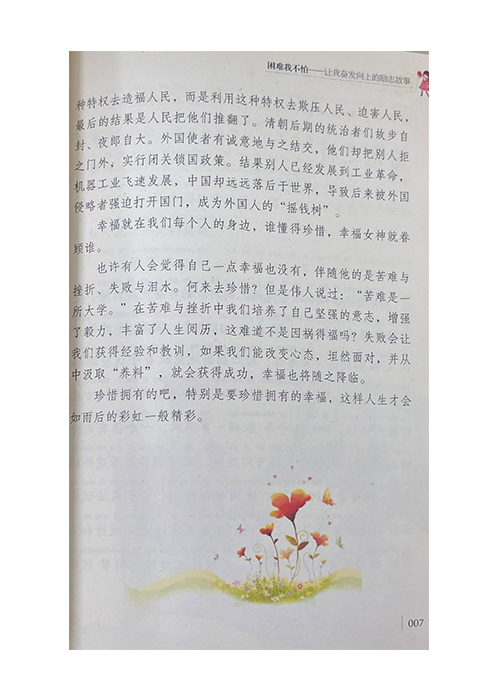 困难我不怕——让我奋发向上的励志故事
种特权去造福人民，而是利用这种特权去欺压人民、迫害人民，
最后的结果是人民把他们推翻了。清朝后期的统治者们故步自
封、夜郎自大。外国使者有诚意地与之结交，他们却把别人拒
之门外，实行闭关锁国政策。结果别人已经发展到工业革命，
机器工业飞速发展，中国却远远落后于世界，导致后来被外国
侵略者强迫打开国门，成为外国人的“摇钱树”。
幸福就在我们每个人的身边，谁懂得珍惜，幸福女神就眷
顾谁。
也许有人会觉得自己一点幸福也没有，伴随他的是苦难与
挫折、失败与泪水。何来去珍惜？但是伟人说过：“苦难是一
所大学。”在苦难与挫折中我们培养了自己坚强的意志，增强
了毅力，丰富了人生阅历，这难道不是因祸得福吗？失败会让
我们获得经验和教训，如果我们能改变心态，坦然面对，并从
中汲取“养料”，就会获得成功，幸福也将随之降临。
珍惜拥有的吧，特别是要珍惜拥有的幸福，这样人生才会
如雨后的彩虹一般精彩。
007